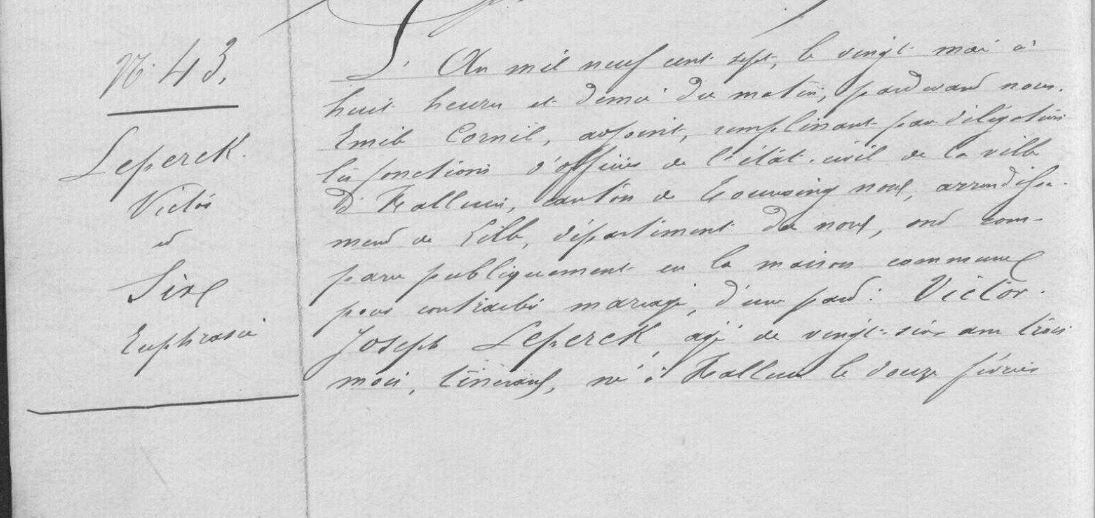 N° 43.
Leperck.
Victor
et
Six
Euphrasie
L'An mil neuf cent sept, le vingt mai à
huit heures et demie du matin, pardevant nous.
Emile Cornil, adjoint, remplissant par délégation
les fonctions d'officier de l'état-civil de la ville
d'Halluin, canton de Tourcoing nord, arrondisse-
ment de Lille, département du nord, ont com-
paru publiquement en la maison commune
pour contracter mariage, d'une part: Victor.
Joseph Leperck agé de vingt-six ans trois
mois, tisserand, né à Halluin le douze février